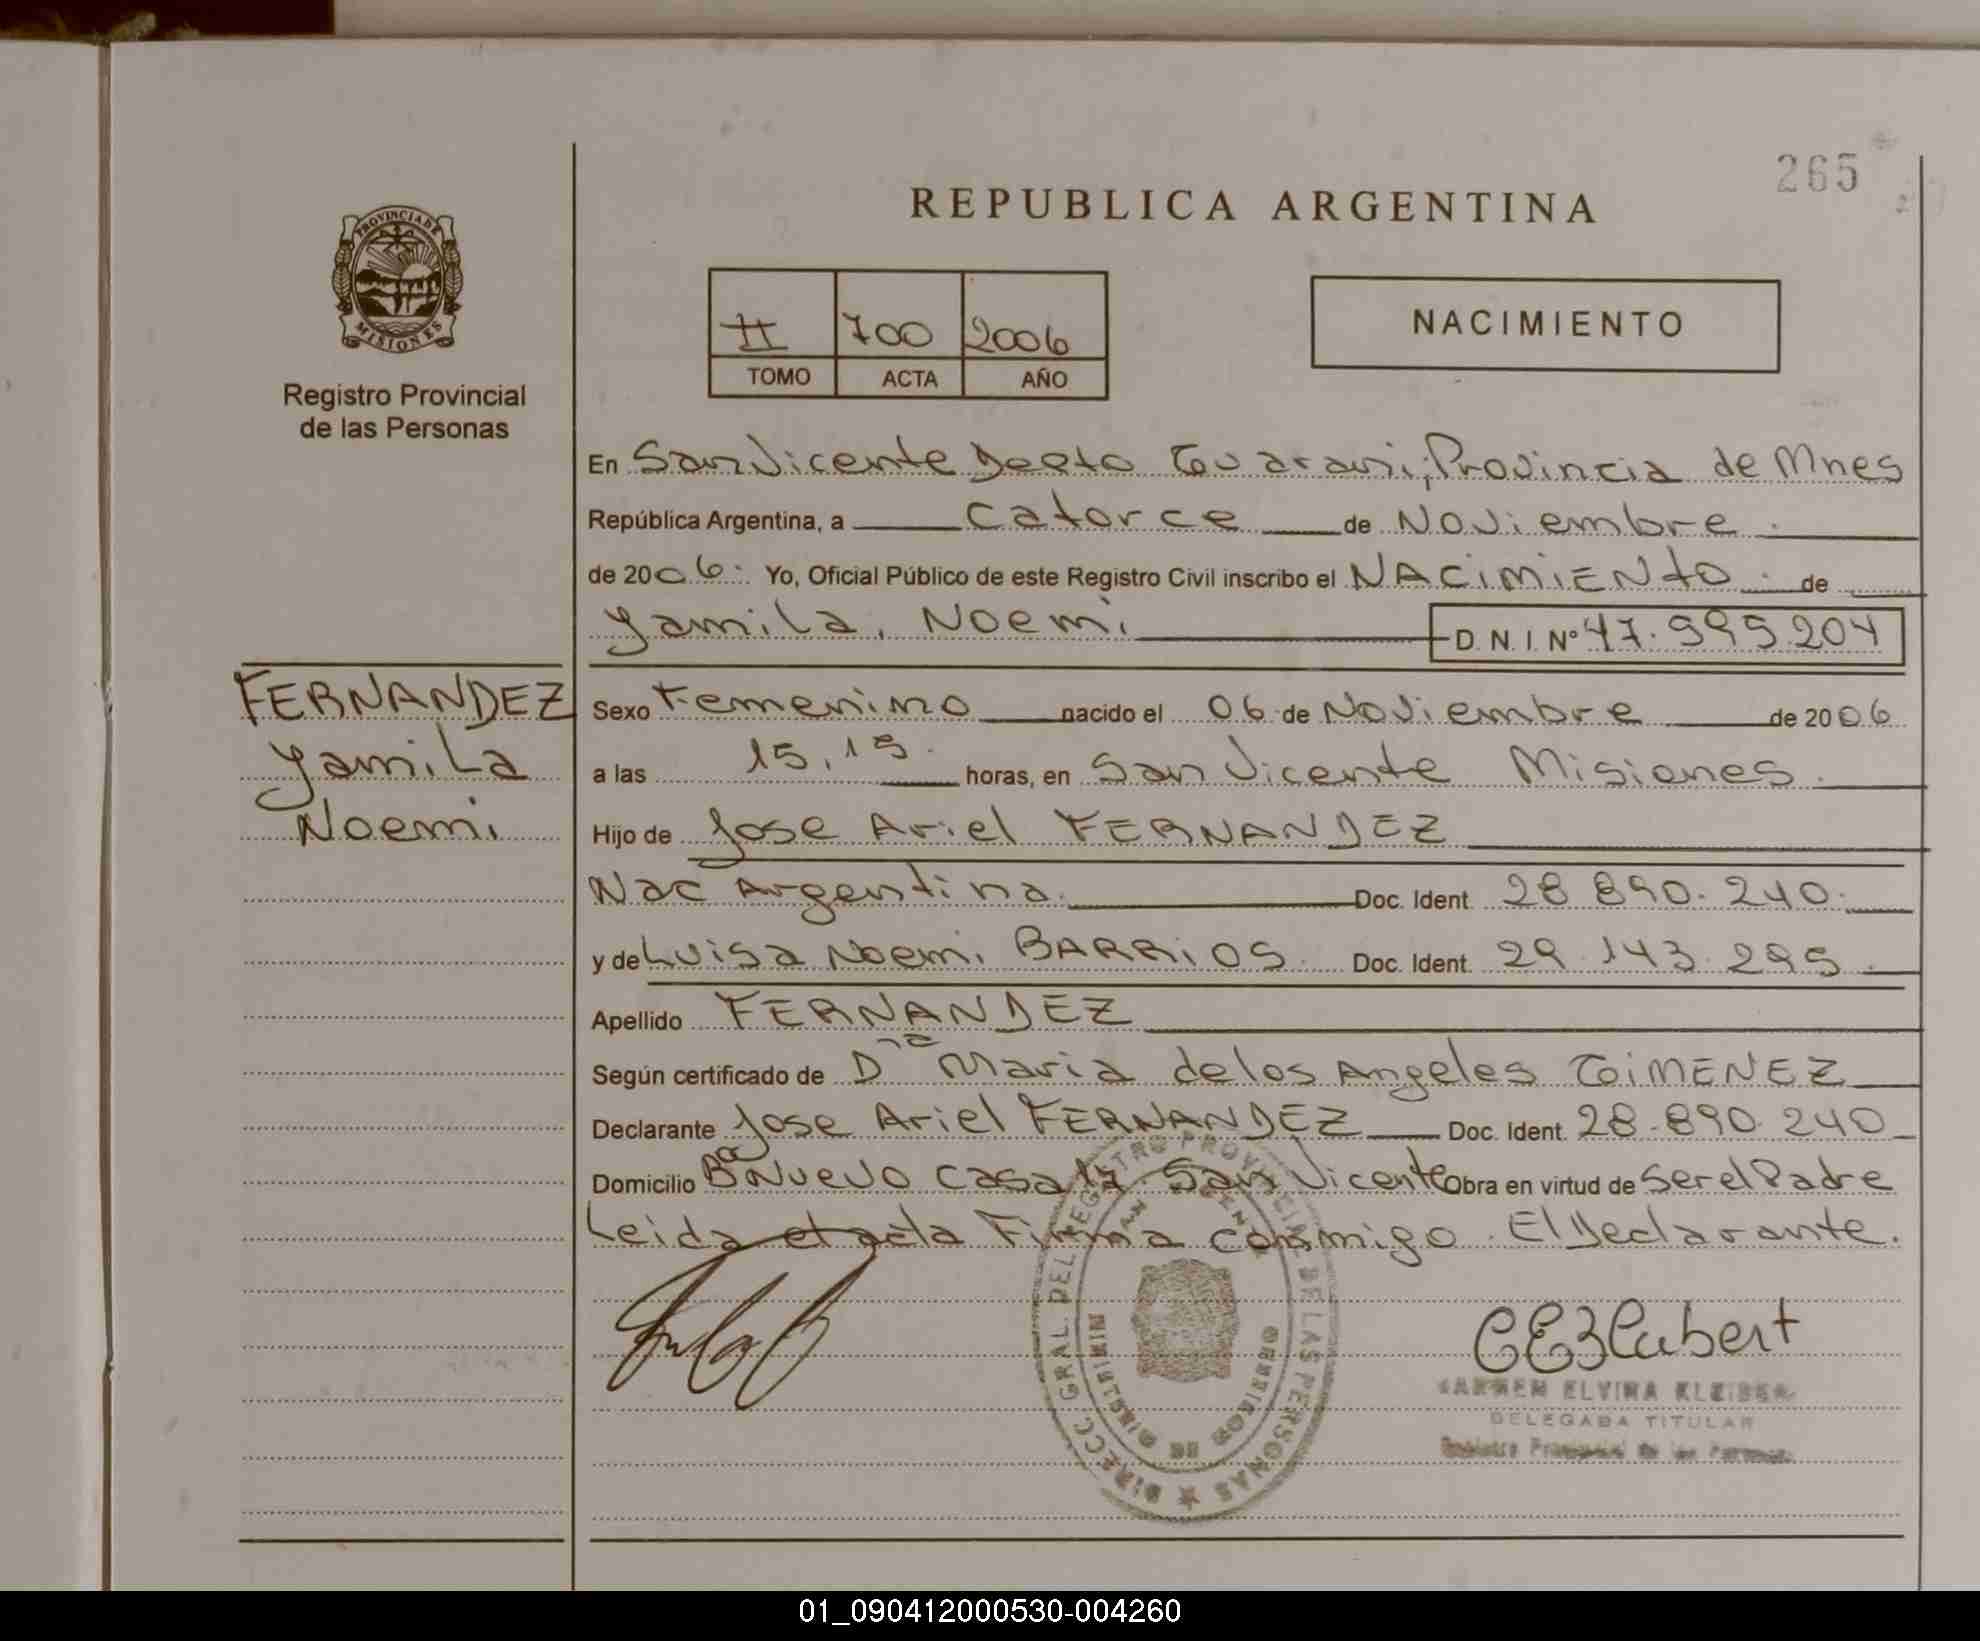 265
REPUBLICA ARGENTINA
PROVINCIA DE
MISIONES
Registro Provincial
de las Personas
II 700 2006
TOMO ACTA AÑO
NACIMIENTO
En San Vicente Depto Guarani, Provincia de Mnes
República Argentina, a catorce de Noviembre.
de 2006. Yo, Oficial Público de este Registro Civil inscribo el NACIMIENTO. de
Yamila, Noemi D. N. I. Nº 47.595.204
FERNANDEZ
Yamila
Noemi
Sexo Femenino nacido el 06 de Noviembre de 2006
a las 15,15. horas, en San Vicente Misiones.
Hijo de Jose Ariel FERNANDEZ
Nac Argentina. Doc. Ident. 28 890. 240.
y de Luisa Noemi BARRIOS. Doc. Ident. 29.143.295.
Apellido FERNANDEZ
Según certificado de Dña Maria de los Angeles GiMENEZ
Declarante Jose Ariel FERNANDEZ Doc. Ident. 28.890.240
Domicilio Bº Nuevo casa San Vicente Obra en virtud de ser el Padre
Leida el acta Firma conmigo. El Declarante.
DIRECC GRAL. DEL REGISTRO PROVINCIAL DE LAS PERSONAS
CARMEN ELVIRA KLEIBER
DELEGADA TITULAR
Registro Provincial de las Personas
01_090412000530-004260